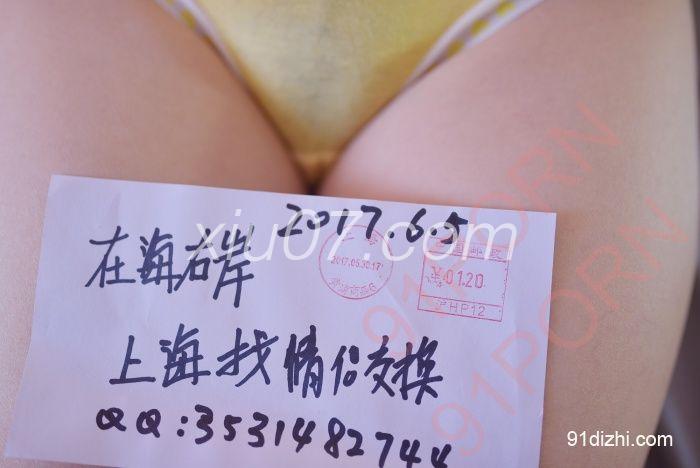 2017.6.5
在海右岸
xiu07.com
2017.05.30.17
¥01.20
HP12
上海找情侣交换
QQ:3531482744
91PORN
91PORN
91dizhi.com